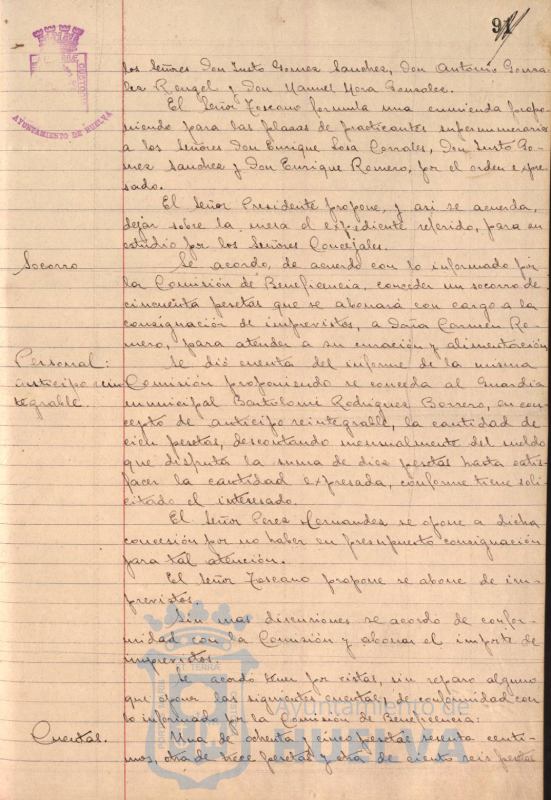 91
AYUNTAMIENTO DE HUELVA
los Señores Don Justo Gomez Sanchez, Don Antonio Gonza-
lez Rengel y Don Manuel Mora Gonzalez.
El Señor Toscano formula una enmienda propo-
niendo para las plazas de practicantes supernumerarios
a los Señores Don Enrique Sosa Corrales, Don Justo Go-
mez Sanchez y Don Enrique Romero, por el orden expre-
sado.
El Señor Presidente propone, y asi se acuerda,
dejar sobre la mesa el expediente referido, para su
estudio por los Señores Concejales.
Socorro
Se acordó, de acuerdo con lo informado por
la Comisión de Beneficencia, conceder un socorro de
cincuenta pesetas que se abonará con cargo a la
consignación de imprevistos, a Doña Carmen Ro-
mero, para atender a su curación y alimentación
Personal:
anticipo rein
tegrable.
Se dió cuenta del informe de la misma
Comisión proponiendo se conceda al Guardia
municipal Bartolomé Rodriguez Borrero, en con-
cepto de anticipo reintegrable, la cantidad de
cien pesetas, descontando mensualmente del sueldo
que disfruta la suma de diez pesetas hasta satis-
facer la cantidad expresada, conforme tiene soli-
citado el interesado.
El Señor Perez Hernandez se opone a dicha
concesión por no haber en presupuesto consignación
para tal atención.
El Señor Toscano propone se abone de im-
previstos.
Sin mas discusiones se acordo de confor-
midad con la Comisión y abonar el importe de
imprevistos.
Se acordó sean por vistas, sin reparo alguno
que oponer las siguientes cuentas, de conformidad con
lo informado por la Comisión de Beneficencia:
Cuentas.
Una de ochenta y cinco pesetas sesenta centi-
mos, otra de trece pesetas y otra de ciento seis pesetas
Ayuntamiento de
HUELVA